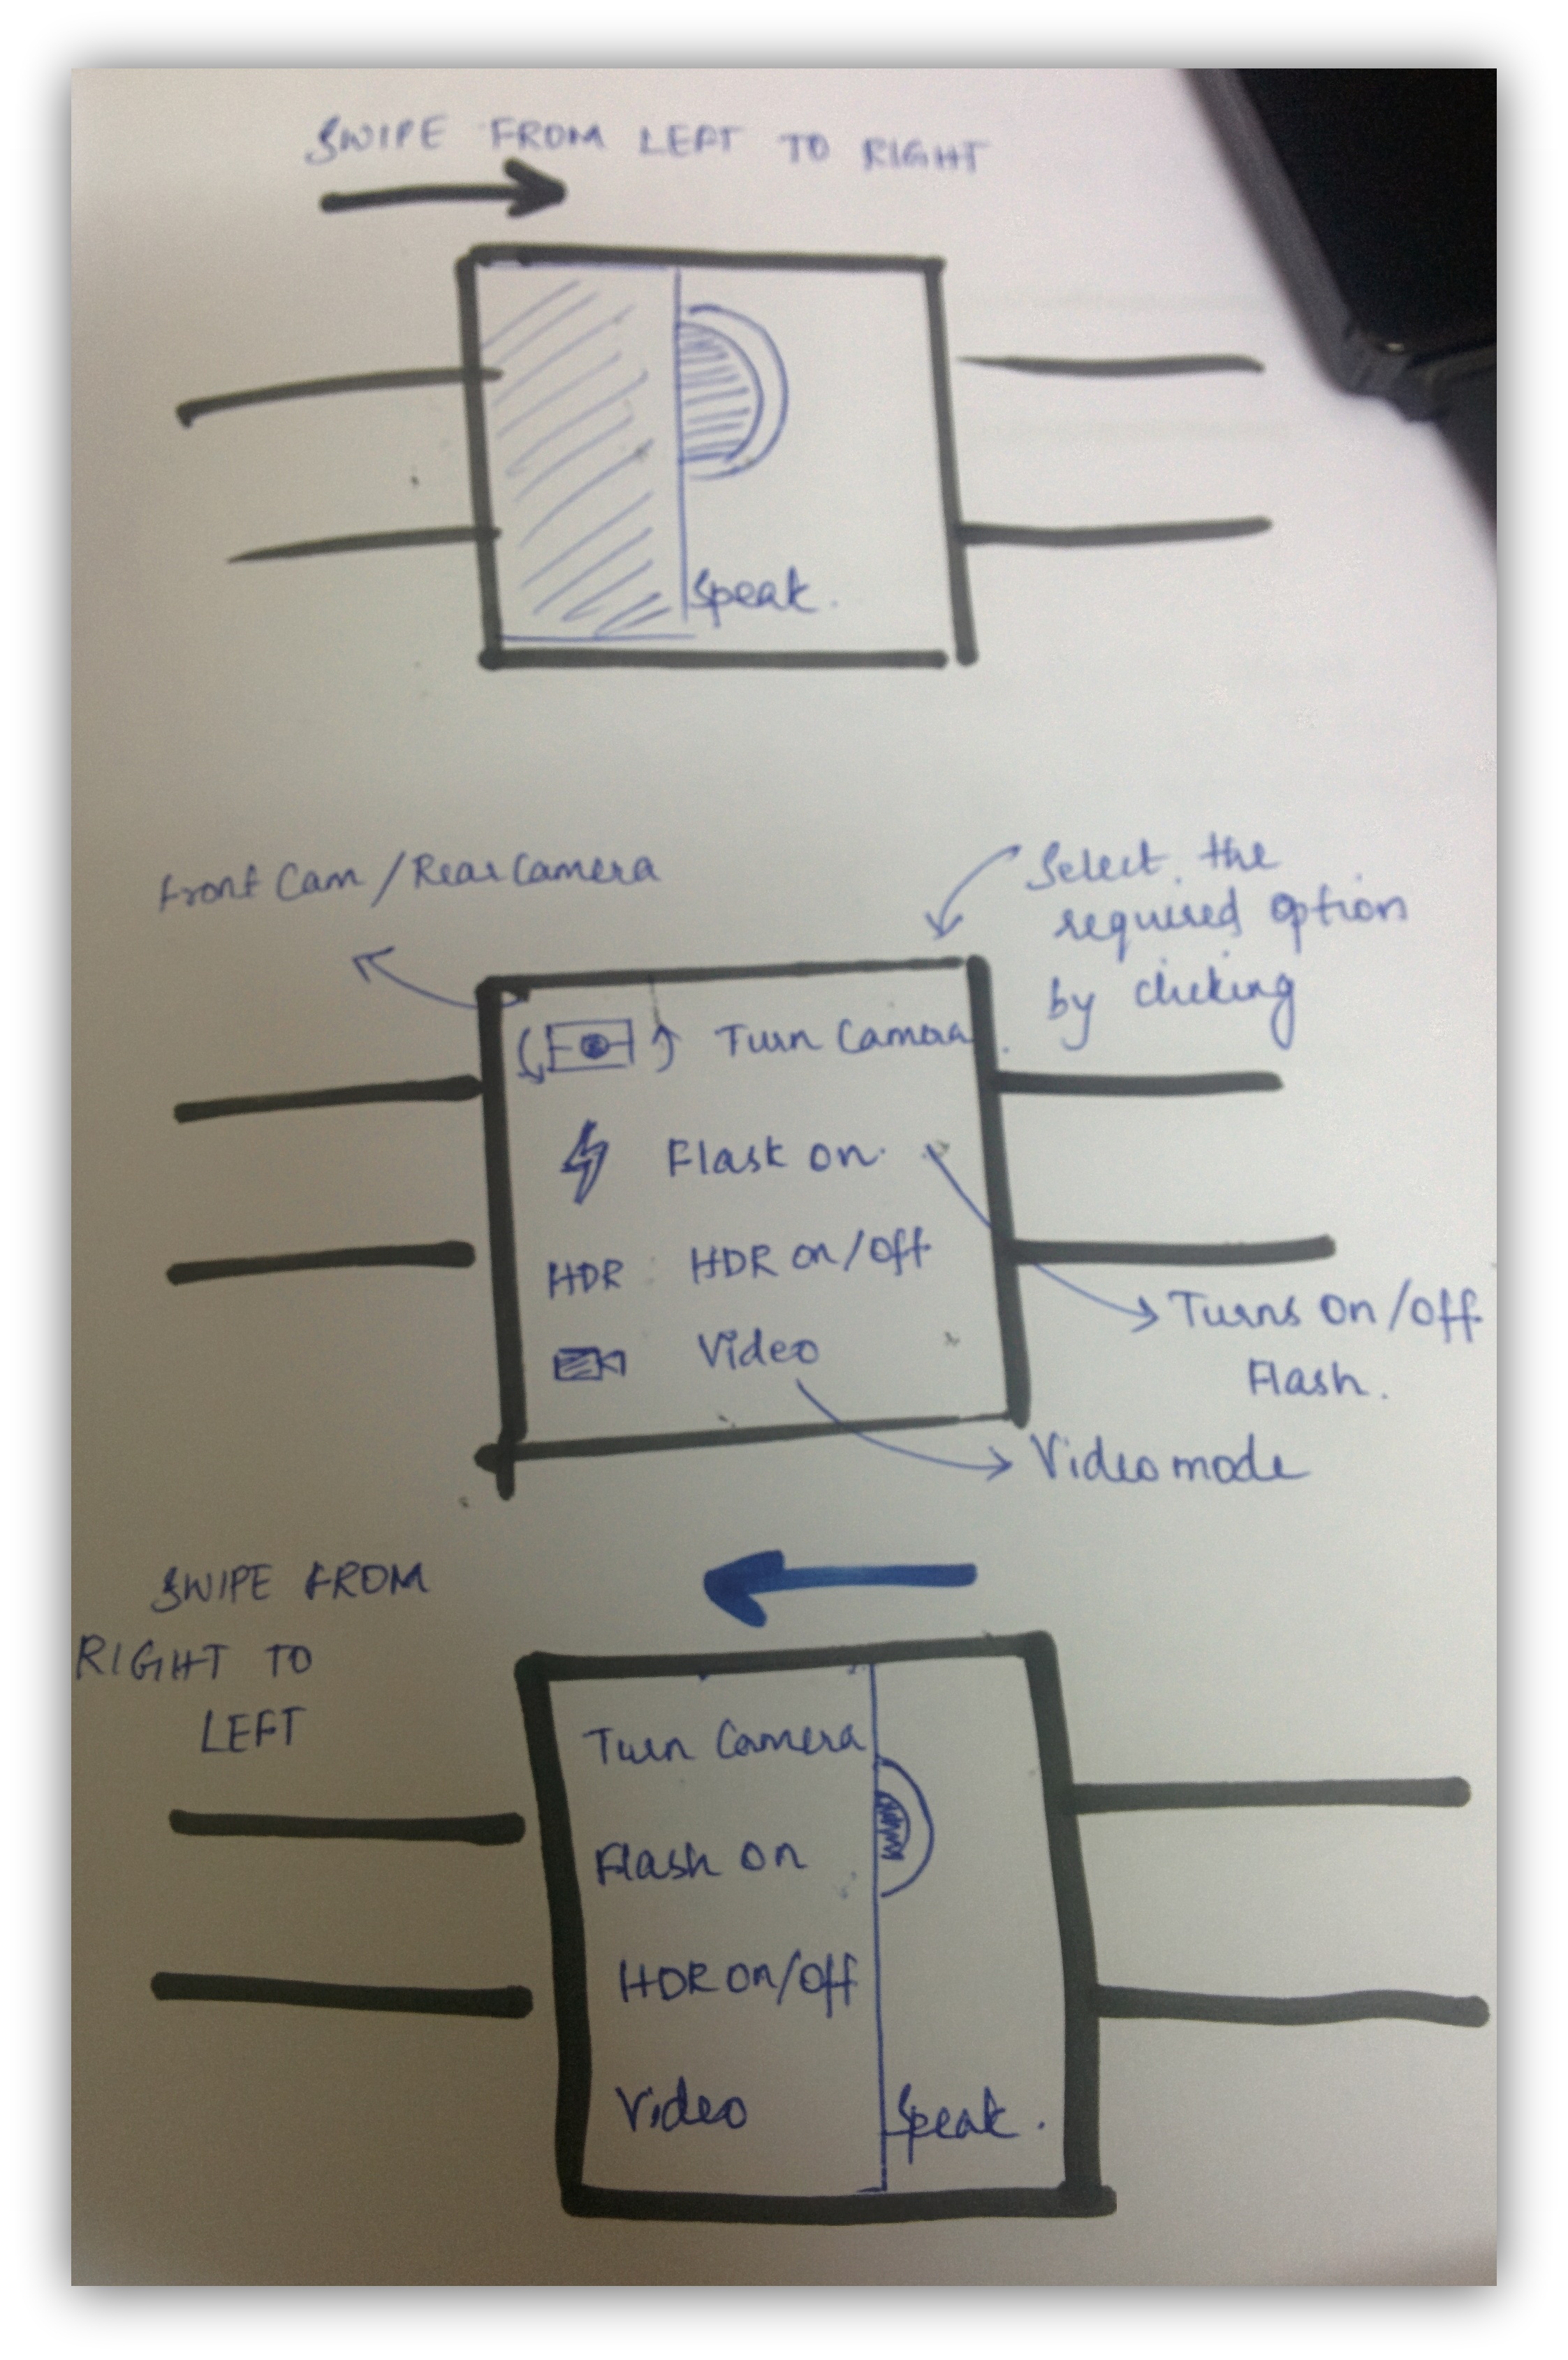 SWIPE FROM LEFT TO RIGHT
Speak.
Front Cam / Rear Camera
Select the
required option
by clicking
Turn Camera
Flask on.
HDR HDR on/off
Video
Turns on/off
Flash.
Video mode
SWIPE FROM
RIGHT TO
LEFT
Turn Camera
Flash on
HDR on/off
Video
Speak.